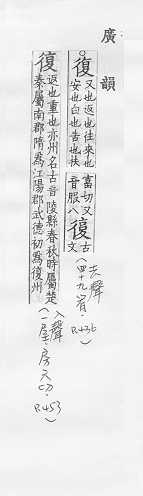 廣韻
復
又也返也往來也
安也白也告也扶
富切又
音服八
復
古
文
去聲
(四十九宥)
P.436
復
返也重也亦州名古音陵縣春秋時屬楚
秦屬南郡隋為江陽郡武德初為復州
入聲
(一屋·房六切)
P.453